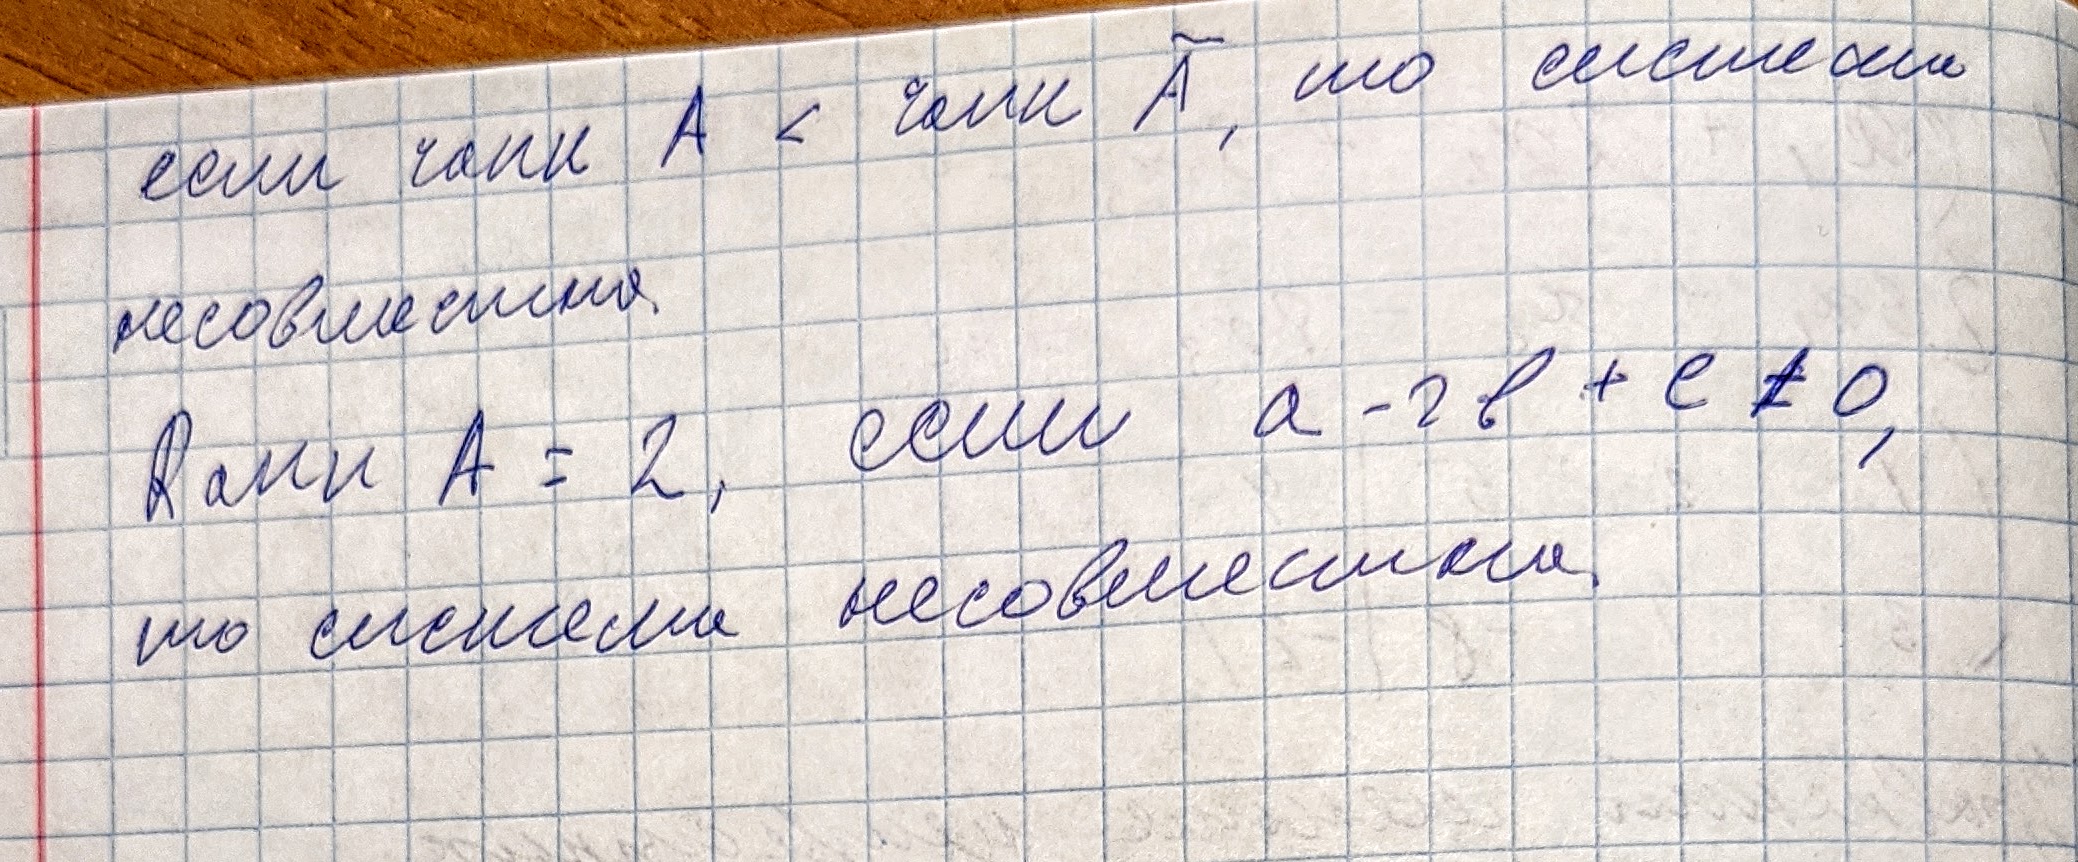 если ранк A < ранк Ã, то система
несовместна.
Rанк A = 2, если a - 2b + c ≠ 0,
то система несовместна.